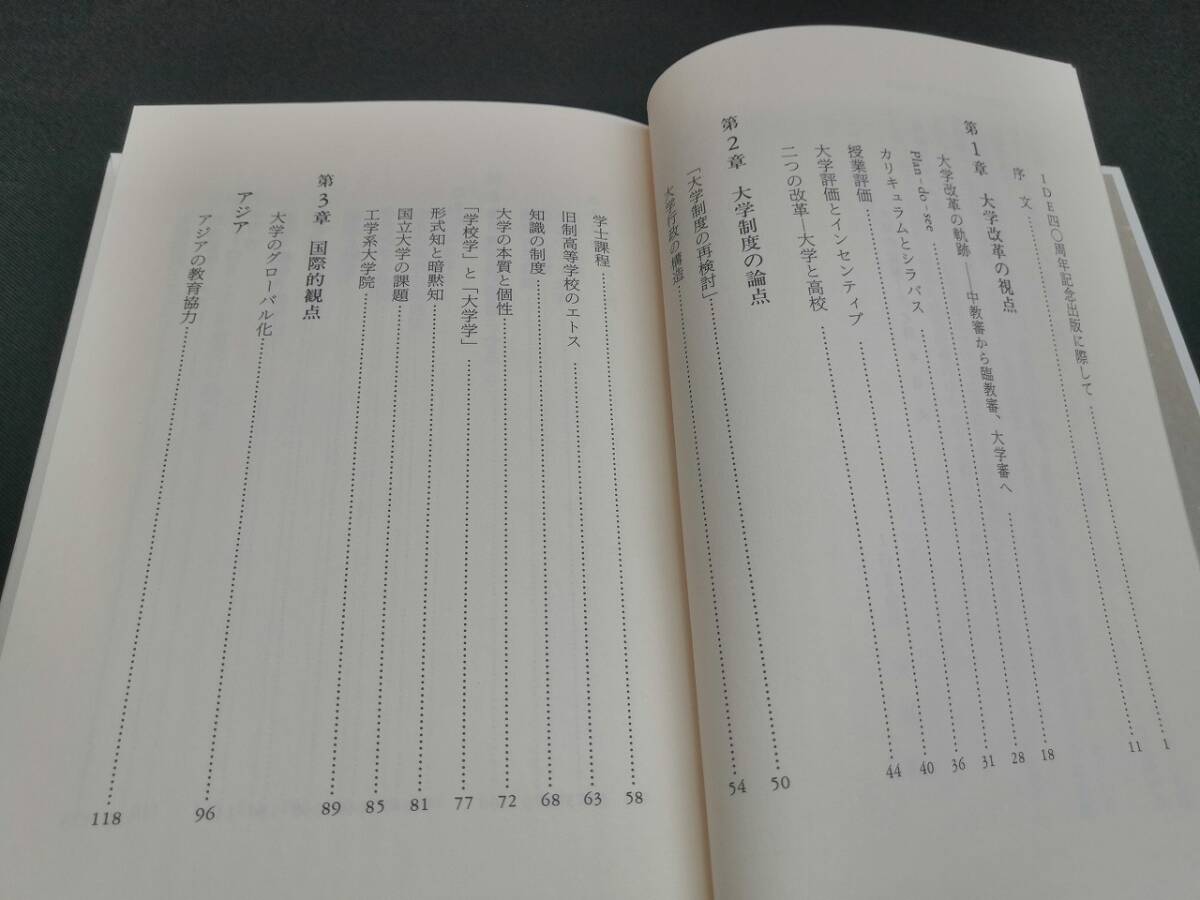 IDE四〇周年記念出版に際して……1
序文……11
第1章 大学改革の視点
大学改革の軌跡――中教審から臨教審、大学審へ……18
Plan-do-see……28
カリキュラムとシラバス……31
授業評価……36
大学評価とインセンティブ……40
二つの改革―大学と高校……44
第2章 大学制度の論点
「大学制度の再検討」……50
大学行政の構造……54
学士課程……58
旧制高等学校のエトス……63
知識の制度……68
大学の本質と個性……72
「学校学」と「大学学」……77
形式知と暗黙知……81
国立大学の課題……85
工学系大学院……89
第3章 国際的観点
大学のグローバル化……96
アジア
アジアの教育協力……118